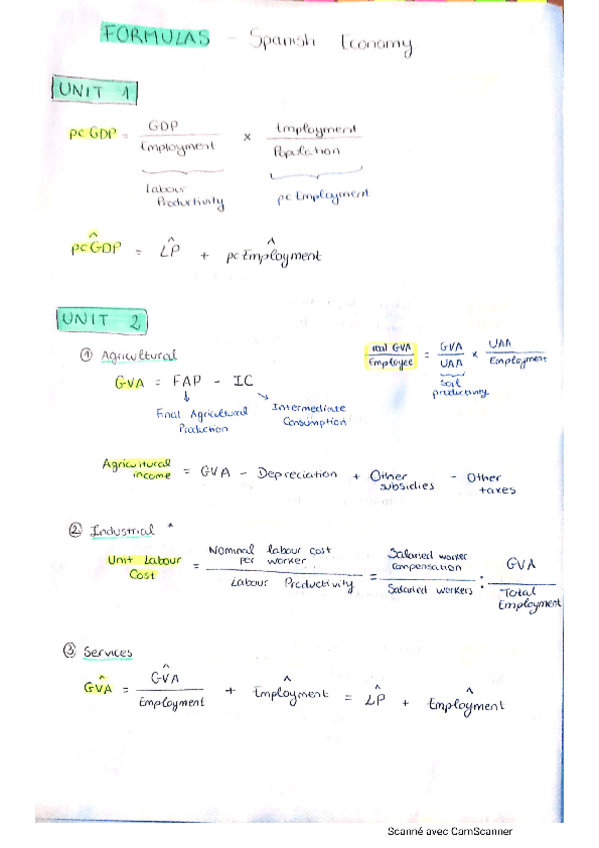 FORMULAS - Spanish Economy
UNIT 1
pc GDP = GDP / Employment x Employment / Population
Labour Productivity
pc Employment
pc GDP^ = LP^ + pc Employment^
UNIT 2
① Agricultural
real GVA / Employee = GVA / UAA x UAA / Employment
soil productivity
GVA = FAP - IC
Final Agricultural Production
Intermediate Consumption
Agricultural income = GVA - Depreciation + Other subsidies - Other taxes
② Industrial *
Unit Labour Cost = Nominal labour cost per worker / Labour Productivity = Salaried worker compensation / Salaried workers : GVA / Total Employment
③ Services
GVA^ = GVA^ / Employment + Employment^ = LP^ + Employment^
Scanné avec CamScanner